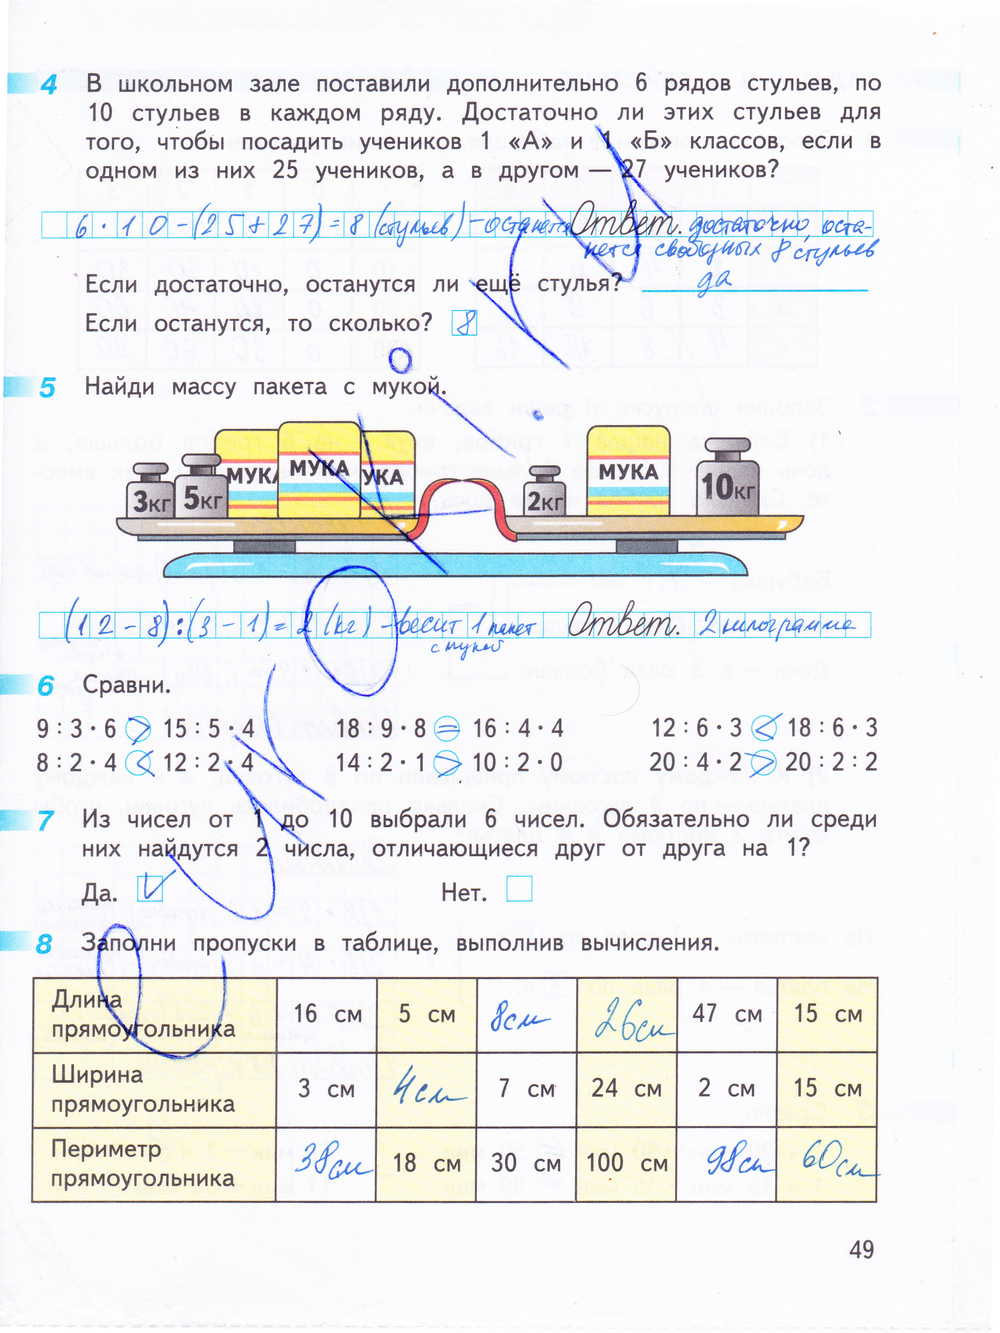 4 В школьном зале поставили дополнительно 6 рядов стульев, по
10 стульев в каждом ряду. Достаточно ли этих стульев для
того, чтобы посадить учеников 1 «А» и 1 «Б» классов, если в
одном из них 25 учеников, а в другом — 27 учеников?
6 · 10 - (25 + 27) = 8 (стульев) - останется Ответ. достаточно, оста-
нется свободных 8 стульев
Если достаточно, останутся ли ещё стулья? да
Если останутся, то сколько? 8
5 Найди массу пакета с мукой.
3кг 5кг МУКА МУКА МУКА 2кг МУКА 10кг
(12 - 8) : (3 - 1) = 2 (кг) - весит 1 пакет Ответ. 2 килограмма
с мукой
6 Сравни.
9 : 3 · 6 > 15 : 5 · 4 18 : 9 · 8 = 16 : 4 · 4 12 : 6 · 3 < 18 : 6 · 3
8 : 2 · 4 < 12 : 2 · 4 14 : 2 · 1 > 10 : 2 · 0 20 : 4 · 2 > 20 : 2 : 2
7 Из чисел от 1 до 10 выбрали 6 чисел. Обязательно ли среди
них найдутся 2 числа, отличающиеся друг от друга на 1?
Да. V Нет.
8 Заполни пропуски в таблице, выполнив вычисления.
Длина прямоугольника 16 см 5 см 8см 26см 47 см 15 см
Ширина прямоугольника 3 см 4см 7 см 24 см 2 см 15 см
Периметр прямоугольника 38см 18 см 30 см 100 см 98см 60см
49